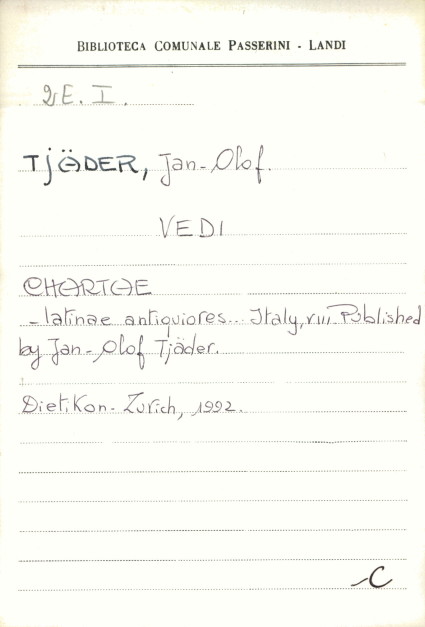 BIBLIOTECA COMUNALE PASSERINI - LANDI
2E. I.
TJÄDER, Jan-Olof.
VEDI
CHARTAE
- latinae antiquiores... Italy, VIII Published
by Jan-Olof Tjäder.
Dietikon-Zurich, 1992.
C